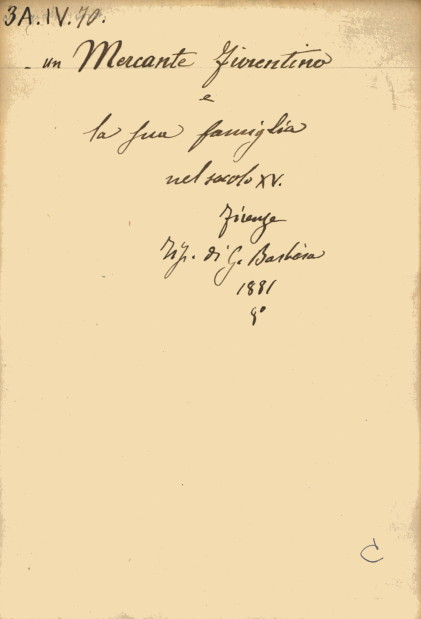 3A.IV.70.
un Mercante Fiorentino
e
la sua famiglia
nel secolo XV.
Firenze
Tip. di G. Barbèra
1881
8°
C